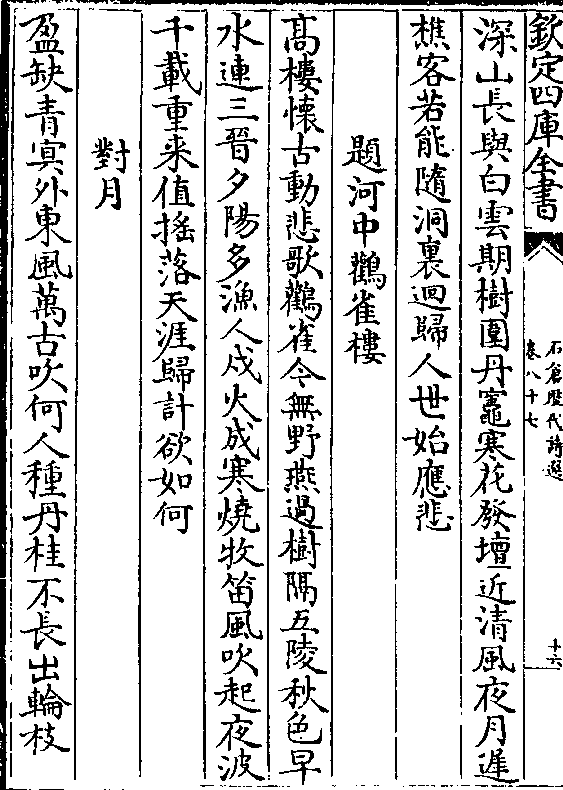 欽定四庫全書
石倉歴代詩選
卷八十七
十六
深山長與白雲期樹圍丹竈寒花發壇近清風夜月遲
樵客若能隨洞裏迴歸人世始應悲
題河中鸛雀樓
髙樓懷古動悲歌鸛雀今無野燕過樹隔五陵秋色早
水連三晉夕陽多漁人戍火成寒燒牧笛風吹起夜波
十載重來值摇落天涯歸計欲如何
對月
盈缺青冥外東風萬古吹何人種丹桂不長出輪枝